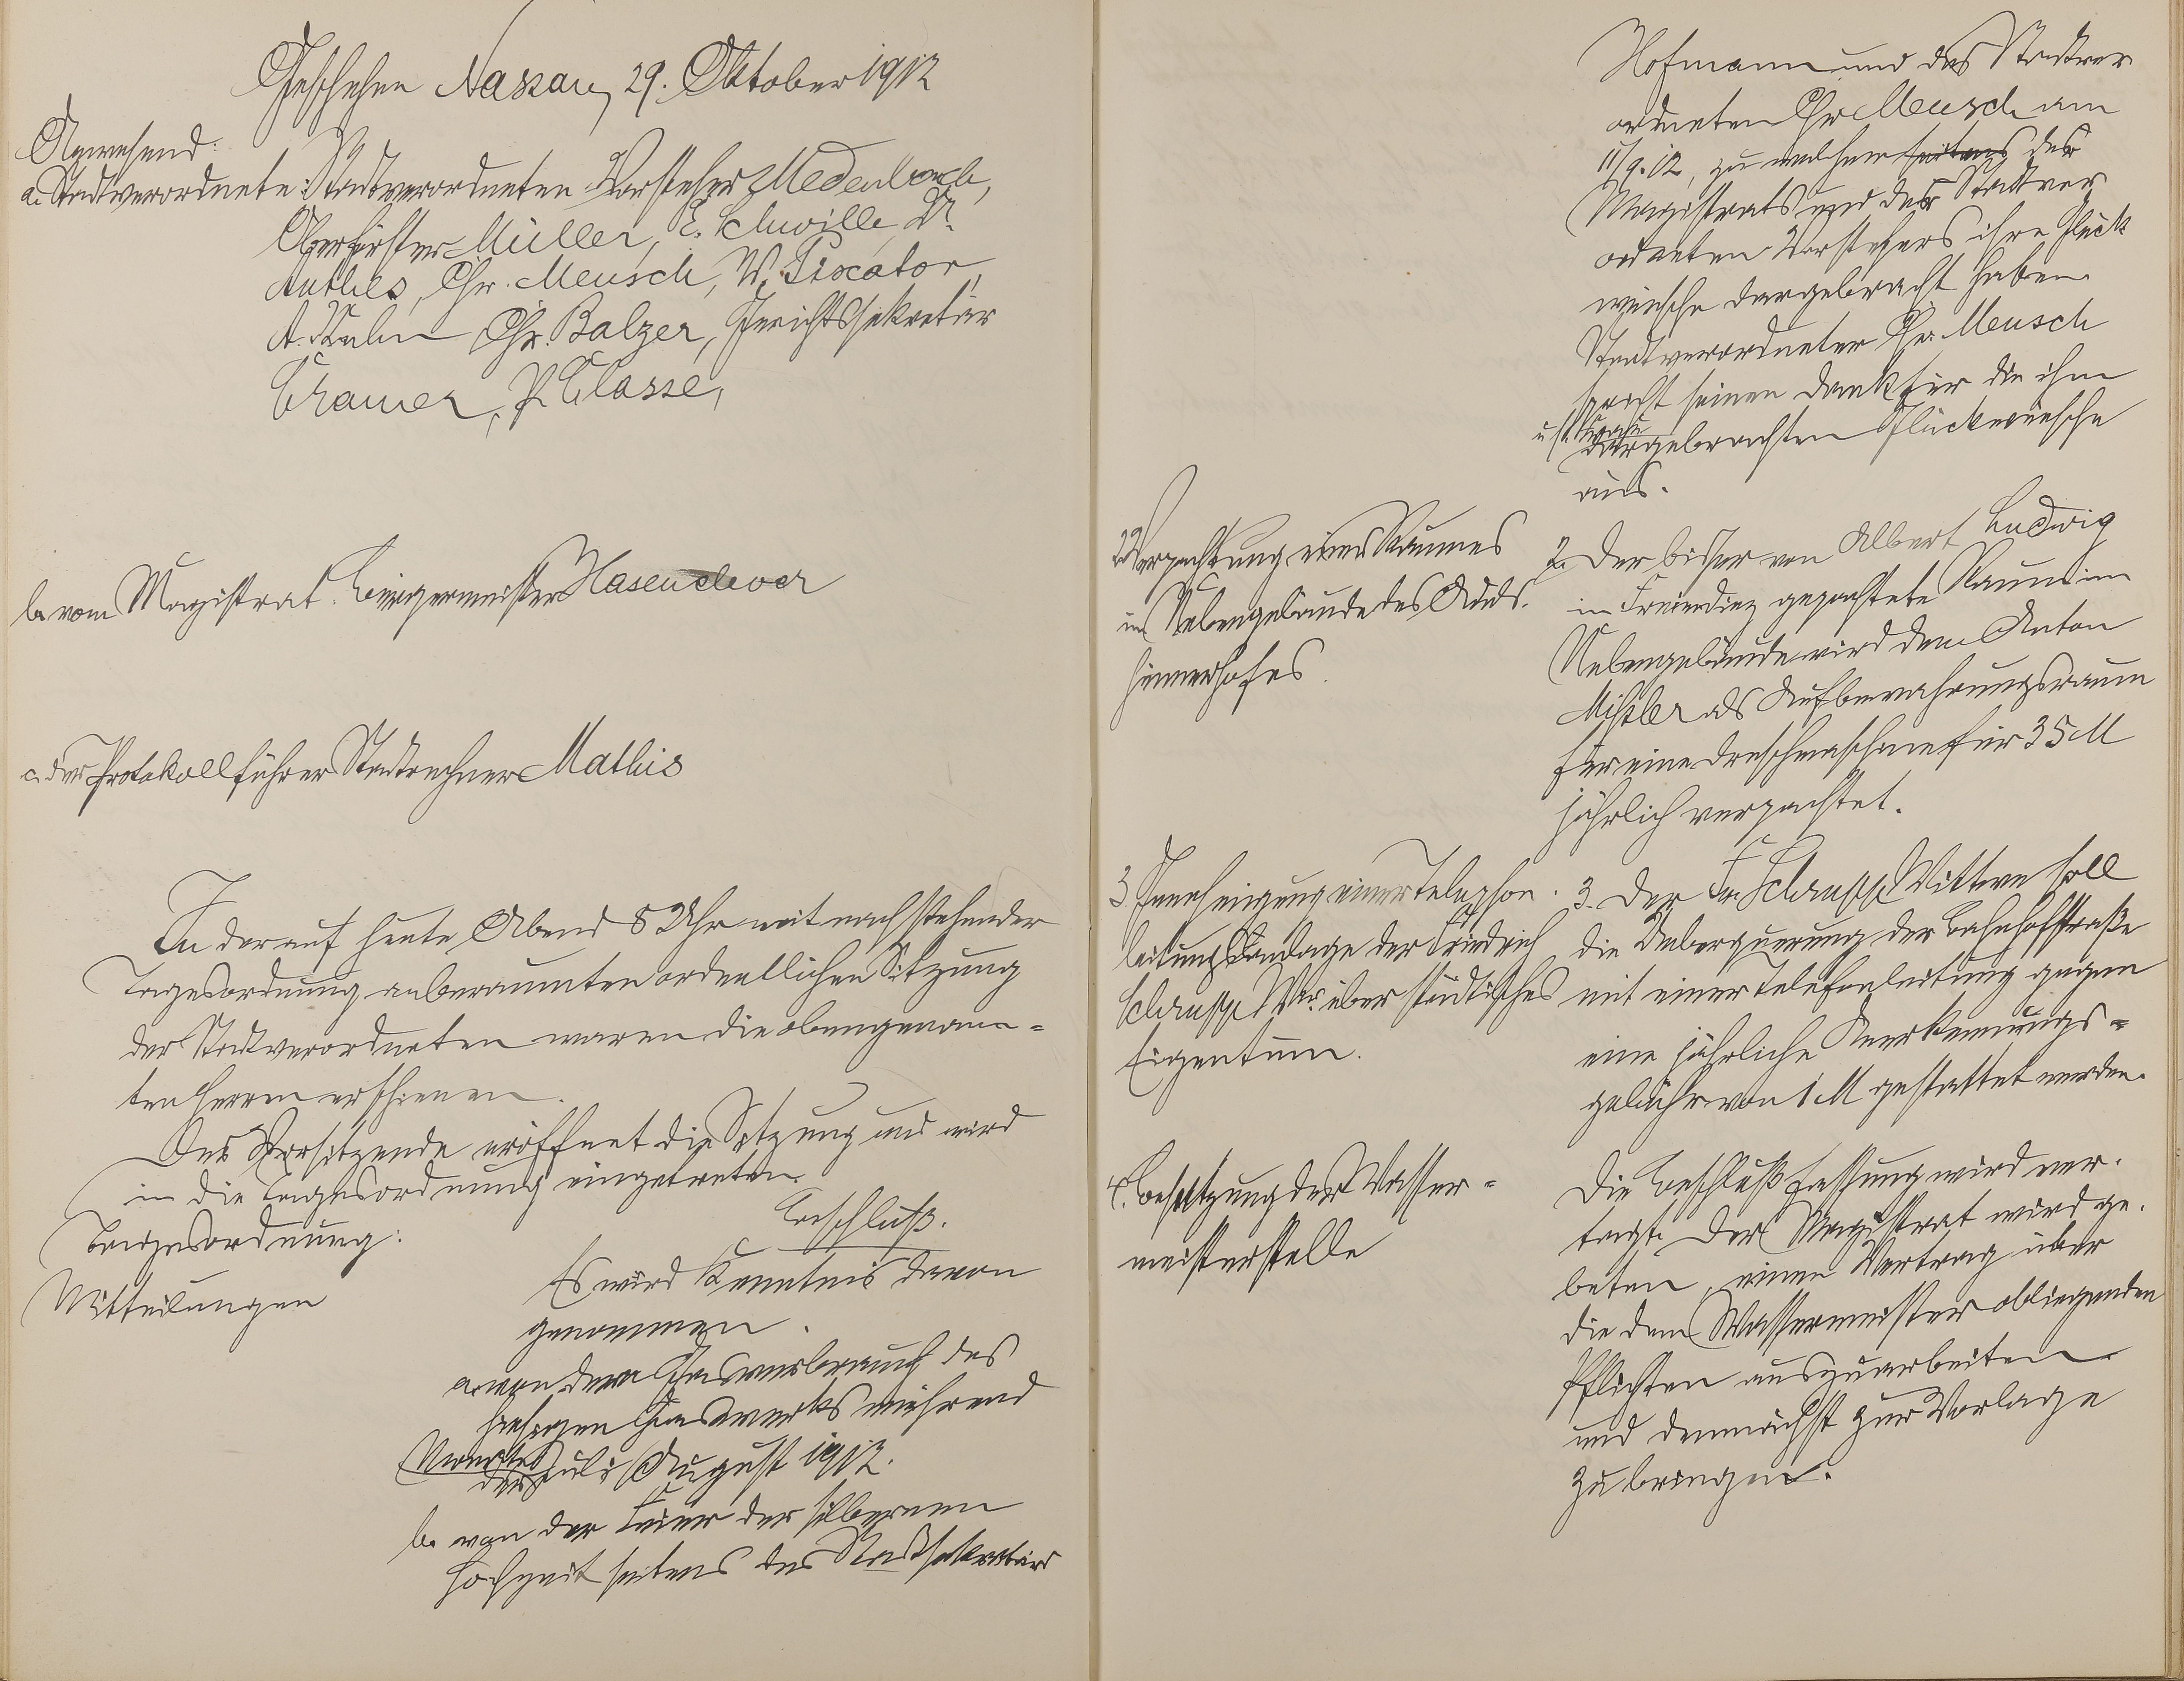 Geschehen Nassau, 29. Oktober 1912
Anwesend:
a. Stadtverordnete: Stadtverordneten-Vorsteher Medenbach,
Oberförster Müller, E. Schwille, Dr.
Anthes, Chr. Meusch, W. Piscator,
A. Kuhn Chr. Balzer, Gerichtssekretär
Cramer, P. Classe,
b. vom Magistrat. Bürgermeister Hasenclever
c. der Protokollführer Stadtrechner Mathis
In der auf heute Abend 8 Uhr mit nachstehender
Tagesordnung anberaumten ordentlichen Sitzung
der Stadtverordneten waren die obengenann=
ten Herren erschienen.
Der Vorsitzende eröffnet die Sitzung und wird
in die Tagesordnung eingetreten.
Beschluß.
Tagesordnung:
Mitteilungen
Es wird Kenntnis davon
genommen.
a. von dem Gasverbrauch des
hiesigen Gaswerks während
Monats
der Juli August 1912.
b. von der Feier der silbernen
Hochzeit seitens des Stadtsekretärs
Hofmann und des Stadtver
ordneten Chr. Meusch am
11/9. 12, zu welchem seitens des
Magistrats und des Stadtver
ordneten Vorstehers ihre Glück
wünsche dargebracht haben.
Stadtverordneter Chr. Meusch
spricht seinen Dank für die ihm
u. s. Frau
dargebrachten Glückwünsche
aus.
2. Verpachtung eines Raumes
im Nebengebäude des Adels.
heimerhofes.
2. Der bisher von Albert Ludwig
in Freiendiez gepachtete Raum im
Nebengebäude wird dem Anton
Mißler als Aufbewahrungsraum
für eine Dreschmaschine für 35 M
jährlich verpachtet.
3 Genehmigung einer Telephon.
leitungsanlage der Friedrich
Schrupp Ww. über städtisches
Eigentum.
3. Der Fr. Schrupp Wittwe soll
die Ueberquerung der Bahnhofstraße
mit einer Telefonleitung gegen
eine jährliche Anerkennungs=
gebühr von 1 M gestattet werden.
4. Besetzung der Wasser=
meisterstelle
Die Beschlußfassung wird ver.
tagt. Der Magistrat wird ge.
beten, einen Vertrag über
die dem Wassermeister obliegenden
Pflichten auszuarbeiten
und demnächst zur Vorlage
zu bringen.